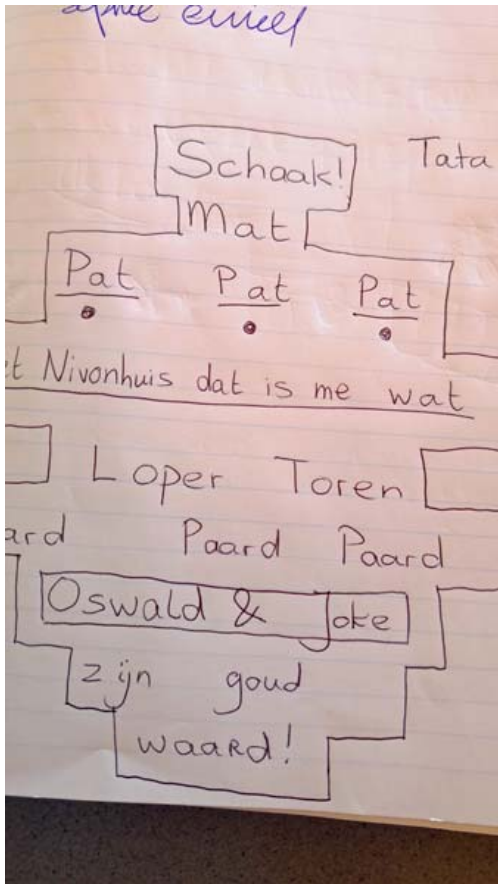 emiel
Schaak! Tata
Mat
Pat Pat Pat
et Nivonhuis dat is me wat
Loper Toren
ard Paard Paard
Oswald & Joke
zijn goud
waard!